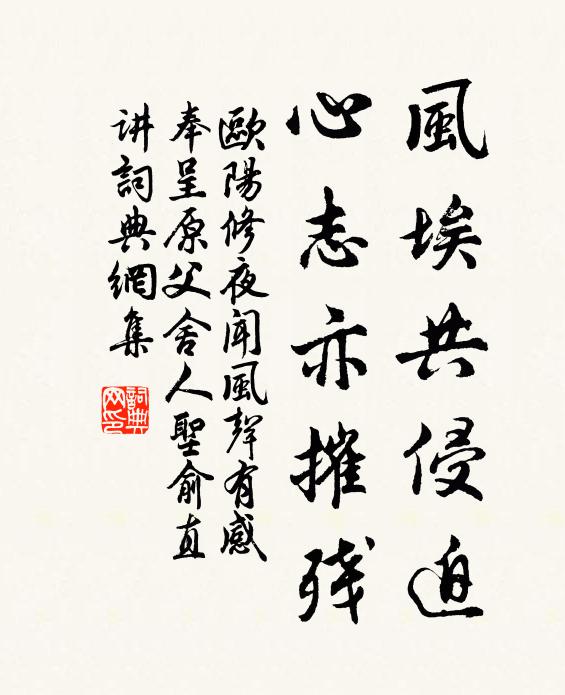 風埃共侵迫
心志亦摧残
歐陽修夜闻風聲有感
奉呈原父舍人聖俞直
讲詞典網集
詞典网印